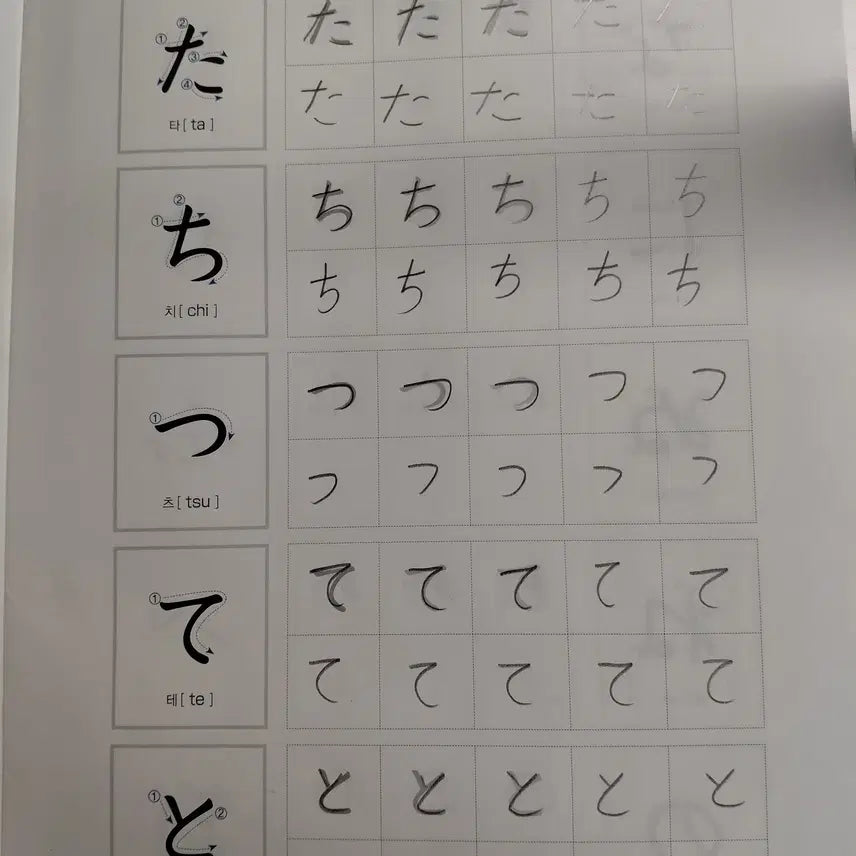 ① ② ③ ④
た た た た た た
타[ ta ] た た た た た
① ②
ち ち ち ち ち ち
치[ chi ] ち ち ち ち ち
①
つ つ つ つ つ つ
츠[ tsu ] つ つ つ つ つ
①
て て て て て て
테[ te ] て て て て て
① ②
と と と と と と